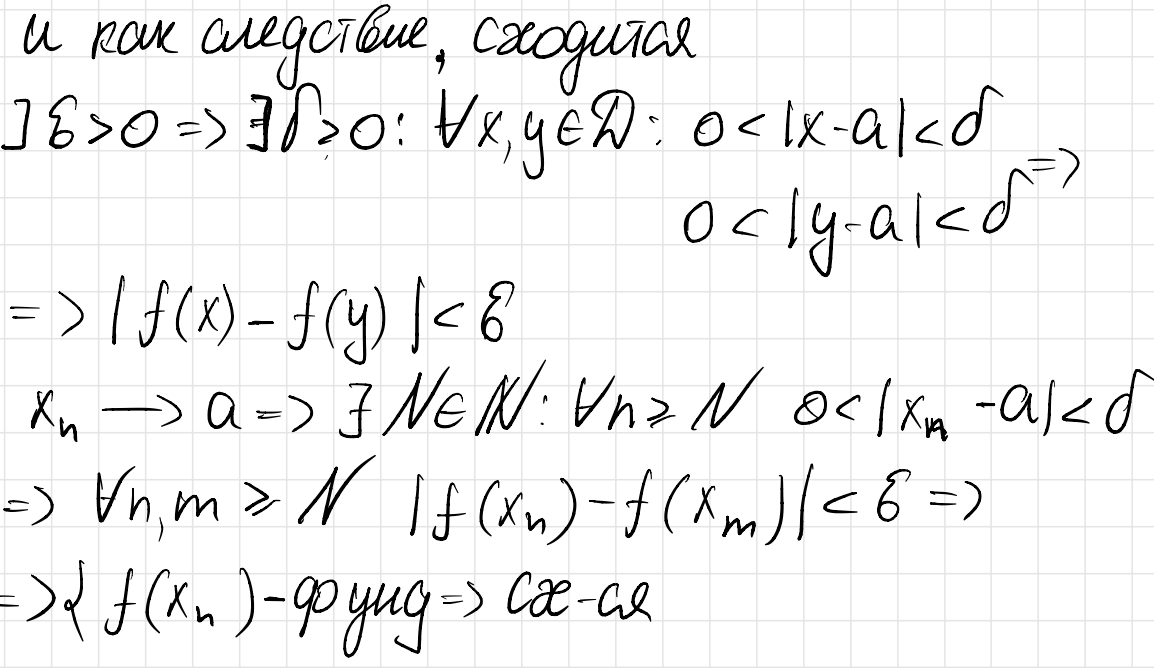 и как следствие, сходится
] ε > 0 => ∃ δ > 0 : ∀x, y ∈ D : 0 < |x - a| < δ
0 < |y - a| < δ =>
=> | f(x) - f(y) | < ε
xₙ → a => ∃ N ∈ ℕ : ∀n ≥ N 0 < |xₙ - a| < δ
=> ∀n, m ≥ N |f(xₙ) - f(xₘ)| < ε =>
=> { f(xₙ) - фунд => сх-ся